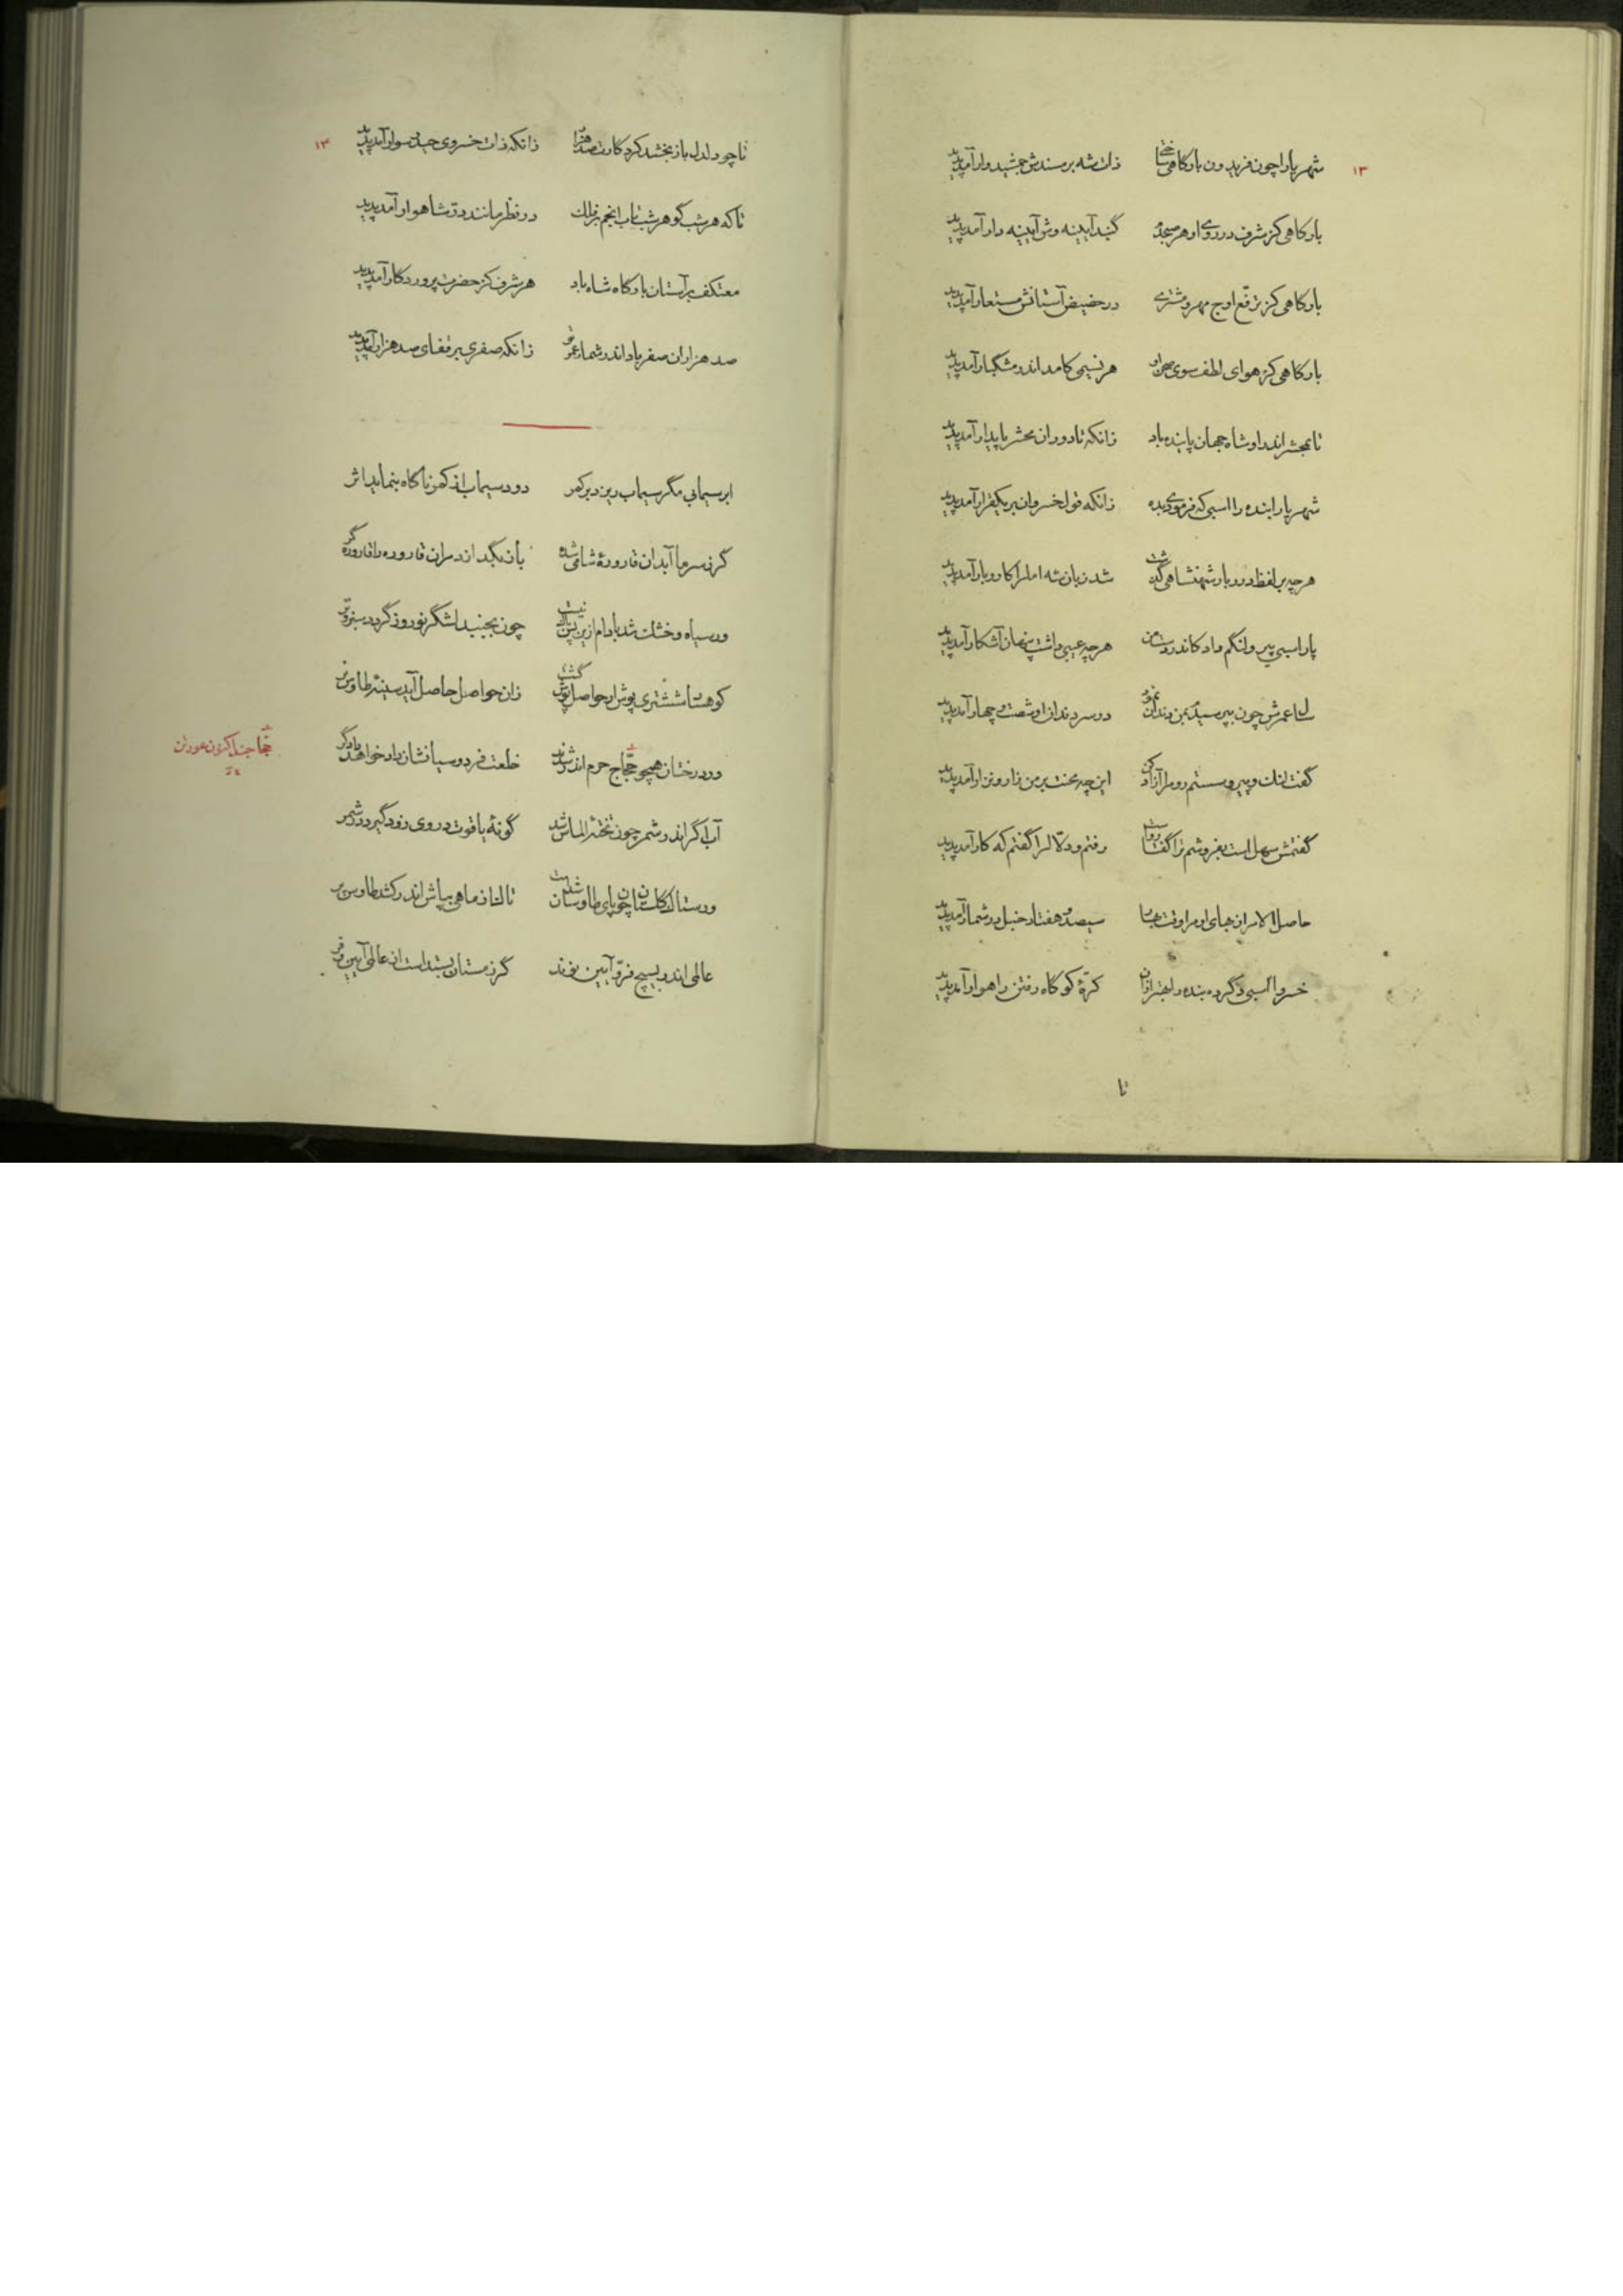 ۱۳
شهریارا چون فریدون بارگاهی ساختی ذات شه بر مسندش جمشیدوار آمد پدید
بارگاهی کز شرف در روی او هر صبحدم گنبد آیینه وش آیینه دار آمد پدید
بارگاهی کز ترفع اوج مهر و مشتری در حضیض آستانش مستعار آمد پدید
بارگاهی کز هوای لطف سوی صحن او هر نسیمی کامد اندر مشگبار آمد پدید
تا بمحشر اندر او شاه جهان پاینده باد زانکه تا دوران محشر پایدار آمد پدید
شهریارا بنده را اسبی که فرمودی بده زانکه قول خسروان بر یکقرار آمد پدید
هر چه بر لفظ درربار شهنشاهی گذشت شد زبان شه املرا کار و بار آمد پدید
پار اسبی پیر و لنگم داد کاندر دست من هر چه عیبی داشت پنهان آشکار آمد پدید
سال عمرش چون بپرسیدم بمن دندان نمود در سر دندان او شصت و چهار آمد پدید
گفت لنک و پیر و سستم رو مرا آزاد کن این چه محنت بر من زار و نزار آمد پدید
گفتمش سهل است بفروشم ترا گفتا رواست رفتم و دلّال را گفتم که کار آمد پدید
حاصل الامر از بهای او مرا وقت بها سیصد و هفتاد خیل در شمار آمد پدید
خسروا اسبی دگر ده بنده را بهتر از آن کرّهٔ کو گاه رفتن راهوار آمد پدید
تا
۱۳
تا چو دلدل باز بخشد کردگارت صد هزار زانکه ذات خسروی حیدر سوار آمد پدید
تا که هر شب گوهر شب تاب انجم بر فلک در نظر مانند درّ شاهوار آمد پدید
معتکف بر آستان بارگاه شاه باد هر شرف کز حضرت پروردگار آمد پدید
صد هزاران صفر باد اندر شمار عمر تو زانکه صفری بر قفای صد هزار آمد پدید
ابر سیمابی مگر سیماب ریزد بر کمر دود سیماب از کمر ناگاه بنماید اثر
گر ز سرما آبدان قارورهٔ شامی شده باز بگدازد مران قاروره را قاروره گر
ور سیاه و خشک شد بادام ازین پس باک نیست چون بجنبید لشگر نوروز گردد سبز و تر
کوهسار ششتری پوش ار حواصل پوش گشت زان حواصل حاصل آید سینهٔ طاوس نر
ور درختان همچو حجّاج حرم اندر شدند خلعت فردوسیانشان داد خواهد دادگر
آب اگر اندر شمر چون تختهٔ الماس شد گونهٔ یاقوت در روی زود گیرد در شمر
ور ستاک گلستان چون پای طاوسان شدست تا نه از ماهی بپاش اندر کشد طاوس پر
عالمی اندر بسیچ فرّ و آیین نوند گر زمستان بستد است از عالمی آیین و فر